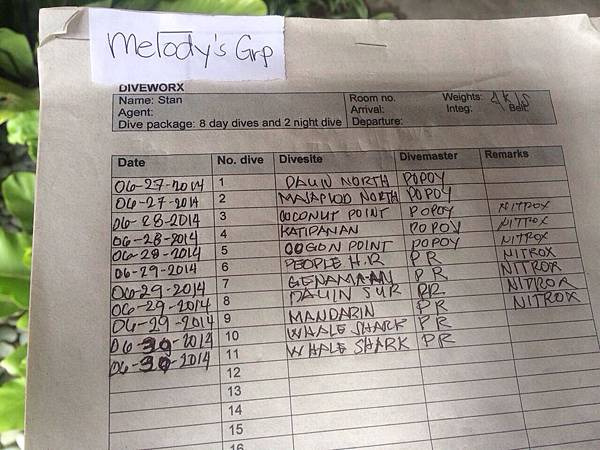 Melody's Grp
DIVEWORX
Name: Stan Room no. Weights: 4k/s
Agent: Arrival: Integ: Belt:
Dive package: 8 day dives and 2 night dive Departure:
Date No. dive Divesite Divemaster Remarks
06-27-2014 1 DAUIN NORTH POPOY
06-27-2014 2 MASAPLOD NORTH POPOY
06-28-2014 3 COCONUT POINT POPOY NITROX
06-28-2014 4 KATIPANAN POPOY NITROX
06-28-2014 5 COGON POINT POPOY NITROX
06-29-2014 6 PEOPLE H.R PR NITROX
06-29-2014 7 PR NITROX
06-29-2014 8 DAUIN SUR PR NITROX
06-29-2014 9 MANDARIN PR NITROX
06-30-2014 10 WHALE SHARK PR
06-30-2014 11 WHALE SHARK PR
12
13
14
15
16